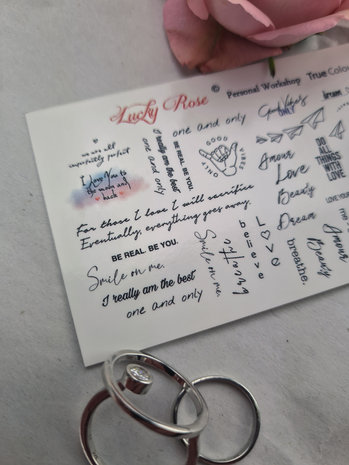 Lucky Rose ©
Personal Workshop True Colou
we are all
imperfectly perfect
I love You to
the moon and
back
one and only
I really am the best
one and only
BE REAL. BE YOU.
GOOD
VIBES
ONLY
Good Vibes
ONLY
DO
ALL
THINGS
WITH
LOVE
Amour
Love
Beauty
Dream
For those I love I will sacrifice
Eventually, everything goes away.
BE REAL. BE YOU.
Smile on me.
I really am the best
one and only
Smile on me.
Strong
believe
Love
breathe.
Beauty
Amour
LOVE YOUR